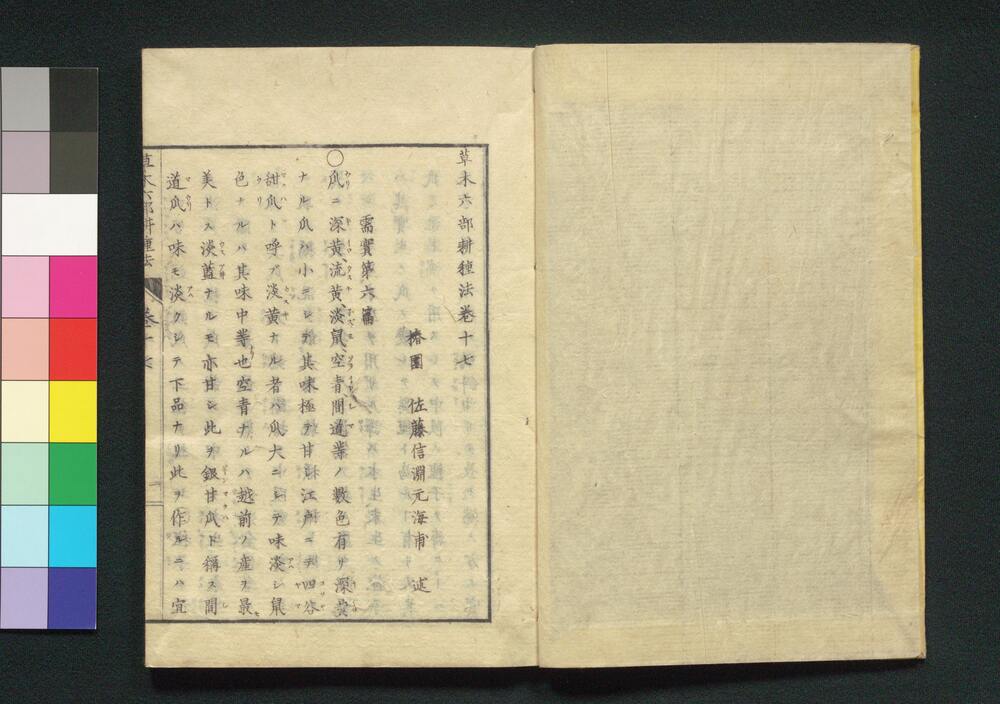 草木六部耕種法巻十七
椿園 佐藤信淵元海甫 述
需實第六篇
〇瓜ニ深黄流黄淡鼠空青間道等ノ數色有リ深黄
ナル瓜ハ小ニシテ其味極テ甘シ江戸ニテ四谷
甜瓜ト呼ブ淡黄ナル者ハ瓜大ニシテ味淡シ鼠
色ナルハ其味中等也空青ナルハ越前ノ産ヲ最
美トス淡藍ナルモ亦甘シ此ヲ銀甘瓜ト稱ス間
道瓜ハ味モ淡クシテ下品ナリ此ヲ作ルニハ宜
草木六部耕種法 巻十七